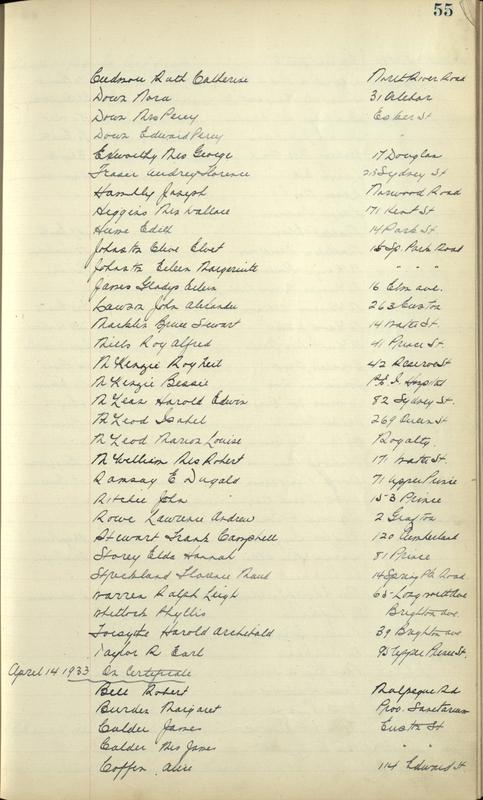 55
Cudmore Ruth Catherine North River Road
Down Nora 31
Down Mrs Percy Esher St
Down Edward Percy "
Exworthy Mrs George 17 Douglas
Fraser Audrey Florence 25 Sydney St
Hambly Joseph Norwood Road
Higgins Mrs Wallace 171 Kent St
Hume Edith 14 Park St
Johnston Clive Elvet 15 Sp. Park Road
Johnston Eileen Marguerite " " "
James Gladys Eileen 16 Elm ave.
Lawson John Alexander 263 Euston
Macklin Bruce Stewart 14 Water St.
Mills Roy Alfred 41 Prince St.
McKenzie Roy Neil 42 Reserve St
McKenzie Bessie P.E.I. Hospital
McLean Harold Edwin 82 Sydney St.
McLeod Isabel 269 Queen St
McLeod Marion Louise Royalty.
McWilliam Mrs Robert 171 Water St.
Ramsay E Dugald 71 Upper Prince
Ritchie John 153 Prince
Rowe Lawrence Andrew 2 Grafton
Stewart Frank Campbell 120 Cumberland
Storey Elda Hannah 81 Prince
Strickland Florence Maud 14 Spring Pk Road
Warren Ralph Leigh 65 Longworth Ave
Whitlock Phyllis Brighton ave.
Forsythe Harold Archibald 39 Brighton ave
Taylor R Earl 95 Upper Prince St.
April 14 1933 On Certificate
Bell Robert Malpeque Rd
Burden Margaret Prov. Sanatorium
Calder James Euston St
Calder Mrs James " "
Coffin Alice 114 Edward St.